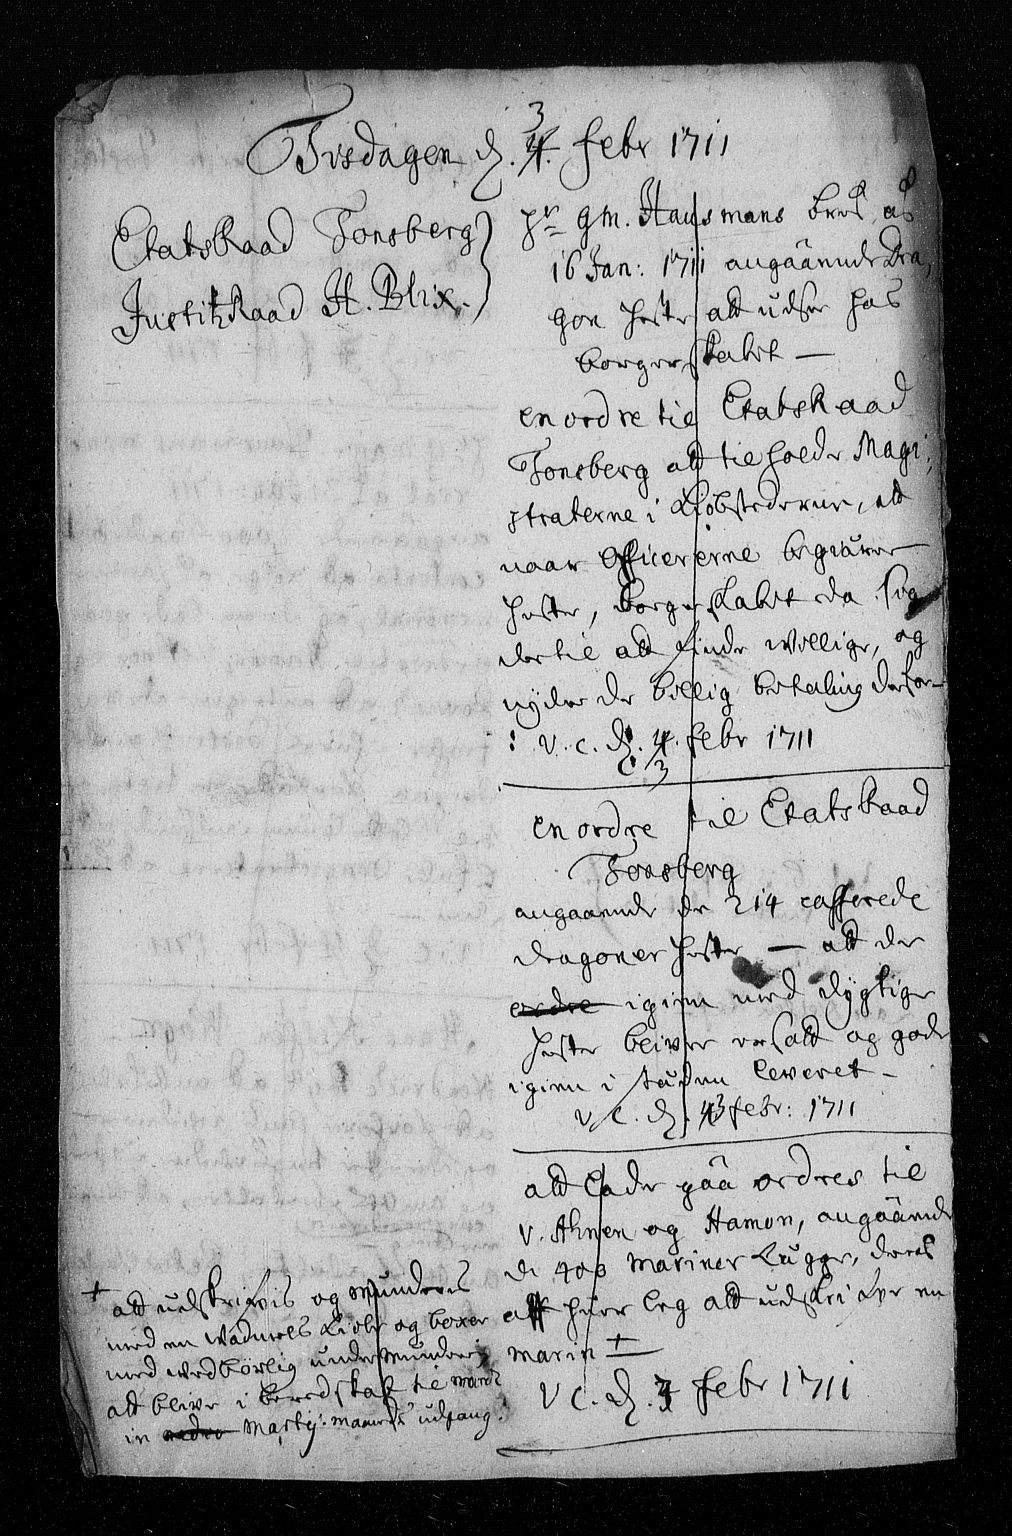 Tisdagen d. 4. febr 1711
3
EtatsRaad Tonsberg
JustitsRaad H. Blix.
hr gm. Hausmans bref af
16 Jan: 1711 angaaende Dra,
gon heste att udser hos
borgerskabet —
en ordre til EtatsRaad
Tonsberg att tilholde Magi,
straterne i Kiøbstederne, att
naar officererne begiærer
heste, borgerskabet da sig
dertil att finde willige, og
nyder de billig betaling derfor—
v. c. d. 4. febr 1711
3
en ordre til EtatsRaad
Tonsberg
angaaende de 214 casserede
dragoner heste — att de
ordre igien med dygtige
heste bliver ersatt og gode
igien i steden leveret —
v. c. d. 3 febr: 1711
att lade gaa ordres til
v. Ahnen og Hamon, angaaende
de 400 mariner Lægge, deres
att hver leg att udskrifve en
marin +
v c. d. 3 febr 1711
+ att udskrifvis og munderes
med en Wadmels Kiole og boxer
med wedbørlig undermundering
att blive i beredskab til
in Martij: maaneds udgang.